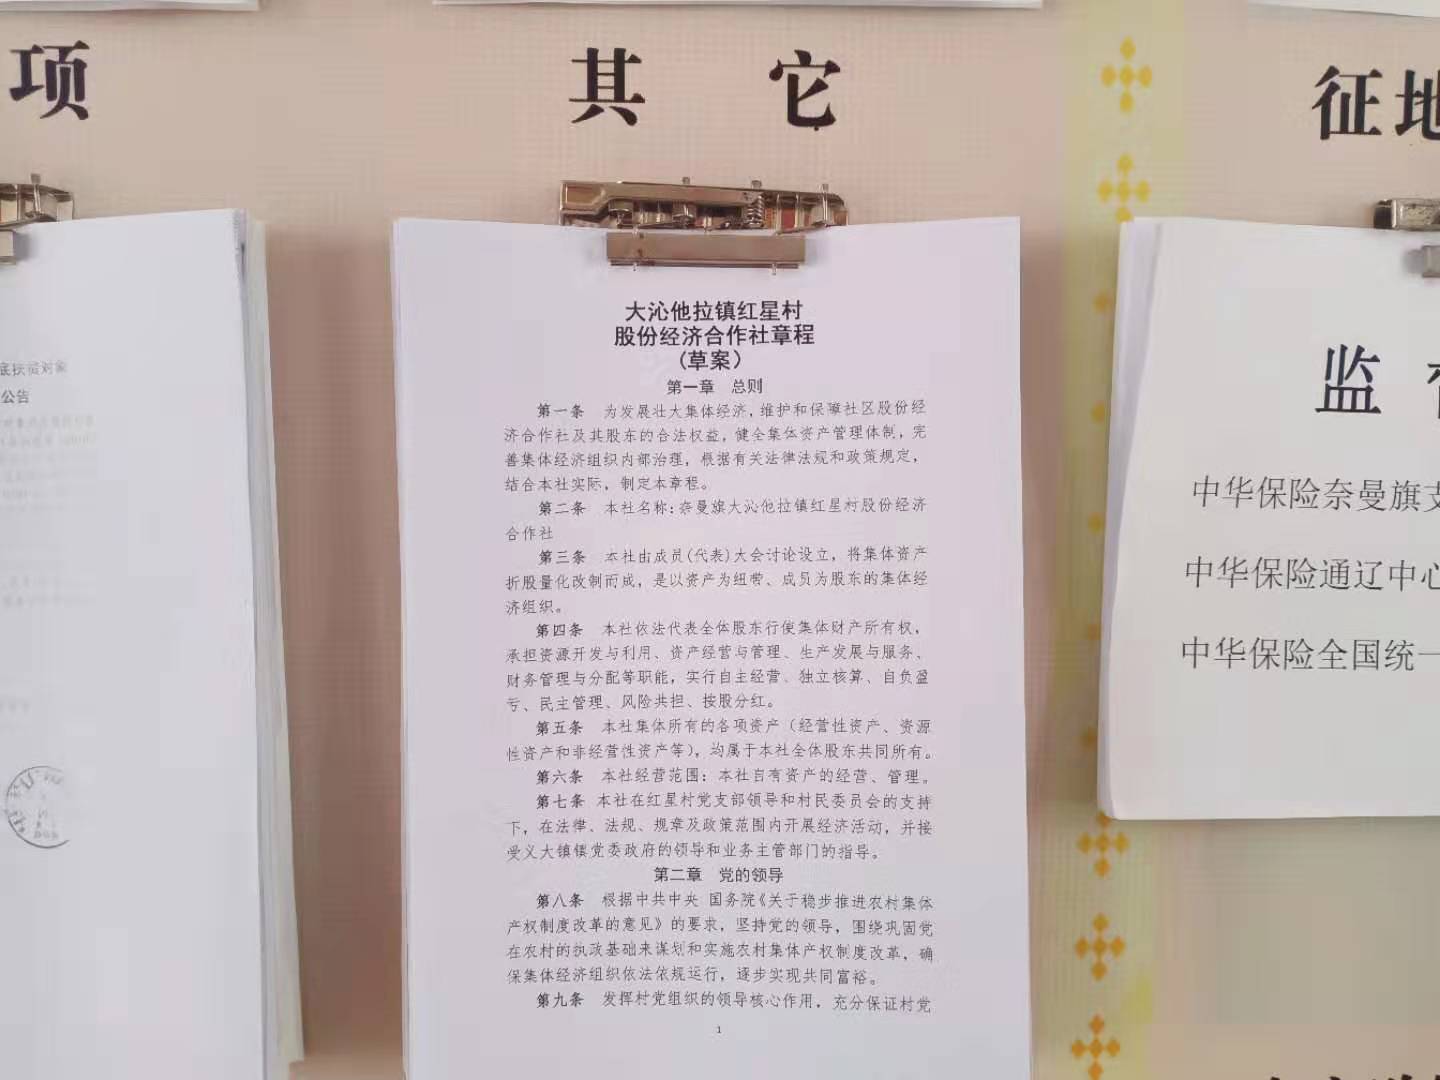 项
其它
征地
底扶贫对象
公告
大沁他拉镇红星村
股份经济合作社章程
(草案)
第一章 总则
第一条 为发展壮大集体经济，维护和保障社区股份经
济合作社及其股东的合法权益，健全集体资产管理体制，完
善集体经济组织内部治理，根据有关法律法规和政策规定，
结合本社实际，制定本章程。
第二条 本社名称：奈曼旗大沁他拉镇红星村股份经济
合作社
第三条 本社由成员(代表)大会讨论设立，将集体资产
折股量化改制而成，是以资产为纽带、成员为股东的集体经
济组织。
第四条 本社依法代表全体股东行使集体财产所有权，
承担资源开发与利用、资产经营与管理、生产发展与服务、
财务管理与分配等职能，实行自主经营、独立核算、自负盈
亏、民主管理、风险共担、按股分红。
第五条 本社集体所有的各项资产（经营性资产、资源
性资产和非经营性资产等），均属于本社全体股东共同所有。
第六条 本社经营范围：本社自有资产的经营、管理。
第七条 本社在红星村党支部领导和村民委员会的支持
下，在法律、法规、规章及政策范围内开展经济活动，并接
受义大镇镇党委政府的领导和业务主管部门的指导。
第二章 党的领导
第八条 根据中共中央 国务院《关于稳步推进农村集体
产权制度改革的意见》的要求，坚持党的领导，围绕巩固党
在农村的执政基础来谋划和实施农村集体产权制度改革，确
保集体经济组织依法依规运行，逐步实现共同富裕。
第九条 发挥村党组织的领导核心作用，充分保证村党
1
监
中华保险奈曼旗支
中华保险通辽中心
中华保险全国统一